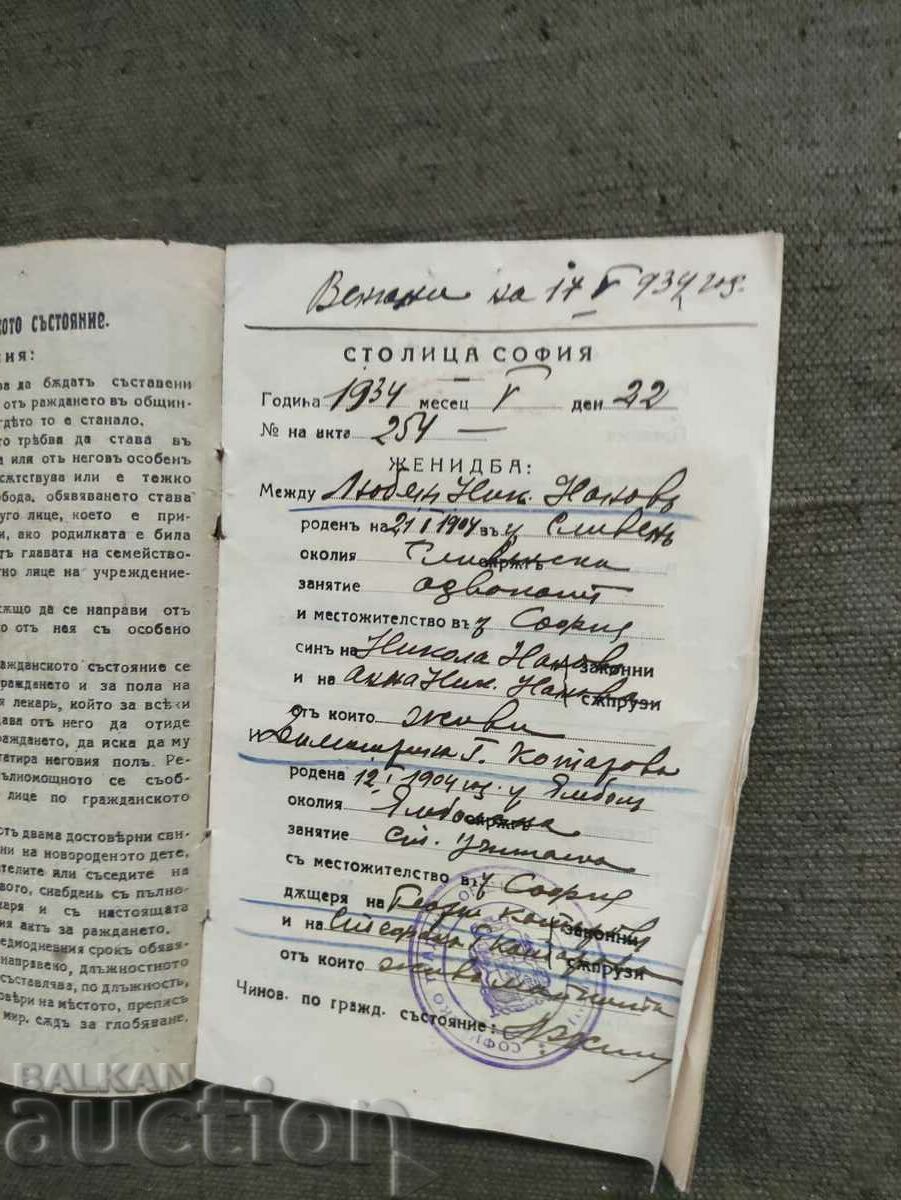 кото състояние.
ния:
ва да бѫдатъ съставени
отъ раждането въ общин-
гдѣто то е станало.
то трѣбва да става въ
а или отъ неговъ особенъ
сѫтствува или е тежко
обода, обявяването става
уго лице, което е при-
и, ако родилката е била
тъ главата на семейство-
тно лице на учреждение-
ѫщо да се направи отъ
о отъ нея съ особено
ажданското състояние се
раждането и за пола на
я лекарь, който за всѣки
ава отъ него да отиде
аждането, да иска да му
татира неговия полъ. Ре-
ълномощното се съоб-
лице по гражданското
отъ двама достовѣрни сви-
ни на новороденото дете,
телите или съседите на
вото, снабденъ съ пълно-
каря и съ настоящата
ия актъ за раждането.
едмодневния срокъ обявя-
направено, длъжностното
съставлява, по длъжность,
овѣри на мѣстото, преписъ
мир. сѫдъ за глобяване.
Венчани на 17 V 934 год.
СТОЛИЦА СОФИЯ
Година 1934 месец V ден 22
№ на акта 254 —
ЖЕНИДБА:
Между Любенъ Ник. Наковъ
роденъ на 21 I 1904 въ у Сливенъ
околия Сливенска окрѫгъ
занятие адвокатъ
и местожителство въ у София
синъ на Никола Наковъ законни
и на Анна Ник. Накова сѫпрузи
отъ които живи
и Димитрина Г. Котарова
родена 12 I 1904 год. у Ямболъ
околия Ямболска окрѫгъ
занятие ст. учителка
съ местожителство въ у София
дѫщеря на Георги Котаровъ законни
и на Стефана Г. Котарова сѫпрузи
отъ които жива майката
Чинов. по гражд. състояние:
СОФ
BALKAN
auction